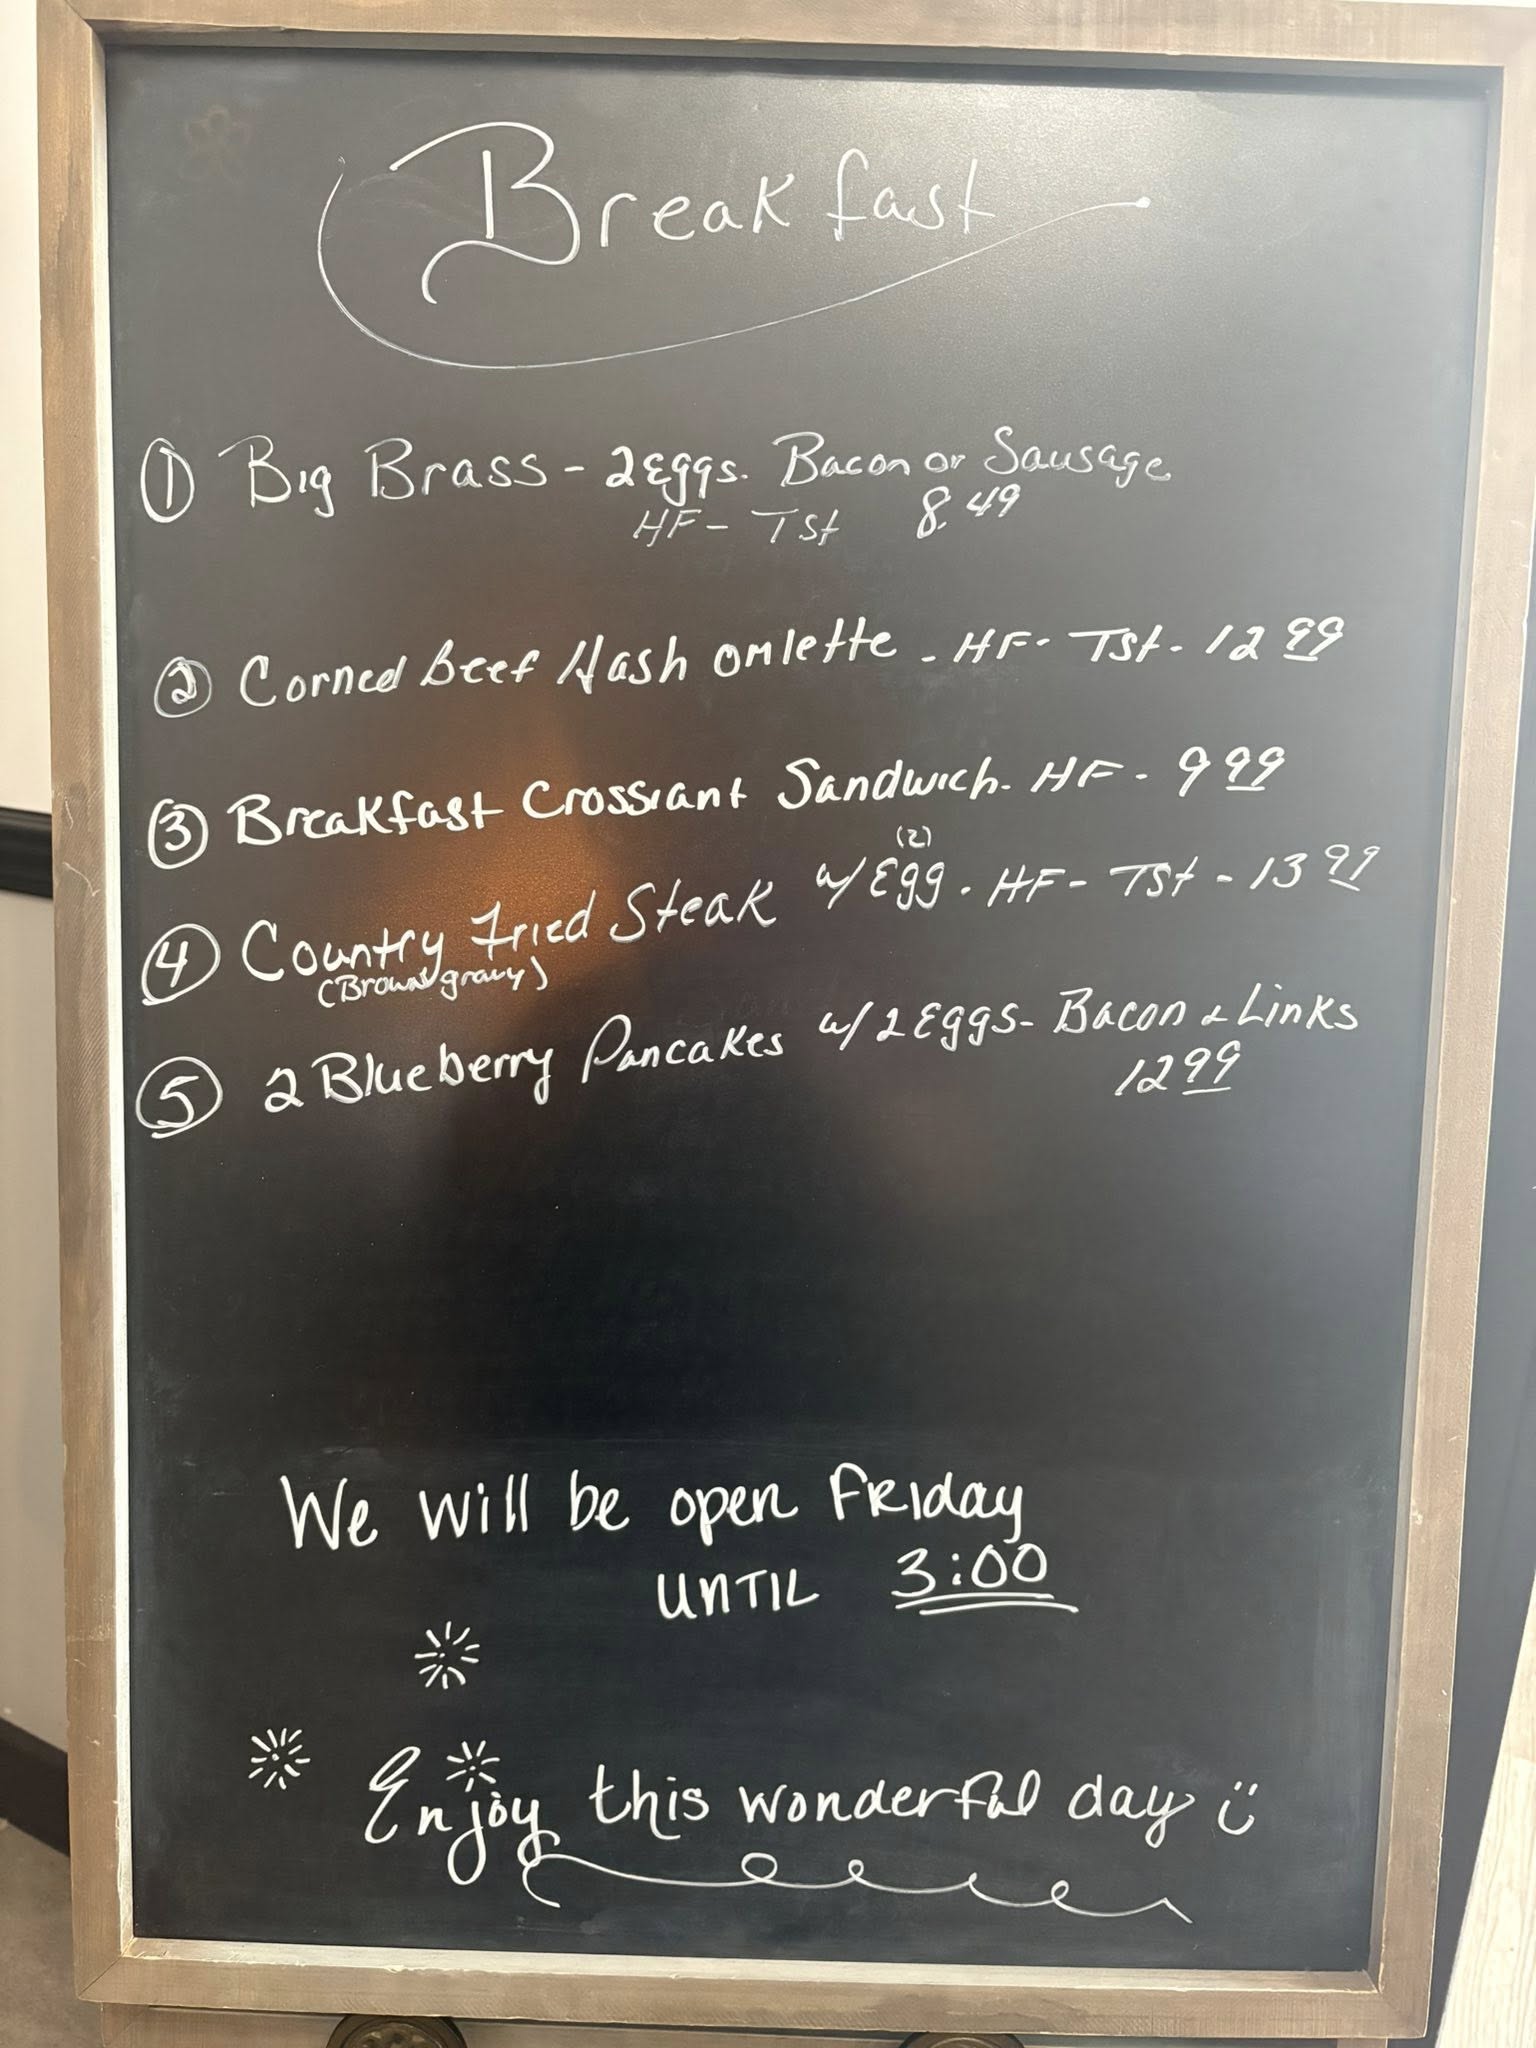 Breakfast
① Big Brass - 2 Eggs. Bacon or Sausage
HF - Tst 8.49
② Corned Beef Hash omlette - HF - Tst - 12 99
③ Breakfast Crossiant Sandwich - HF - 9 99
④ Country Fried Steak w/ (2) Egg - HF - Tst - 13 99
(Brown gravy)
⑤ 2 Blueberry Pancakes w/ 2 Eggs - Bacon & Links
12 99
We will be open FRIday
UNTIL 3:00
Enjoy this wonderful day